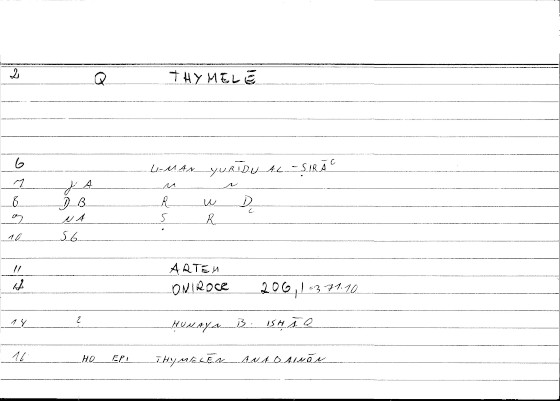 2 Q THYMELĒ
6 U-MAN YURĪDU AL-ṢIRĀC
7 γ A M N
8 D B R W D
9 N A Ṣ R
10 S6
11 ARTEM
12 ONIROCR 206,1 371.10
14 ḤUNAYN B. ISḤĀQ
16 HO EPI THYMELĒN ANABAINŌN